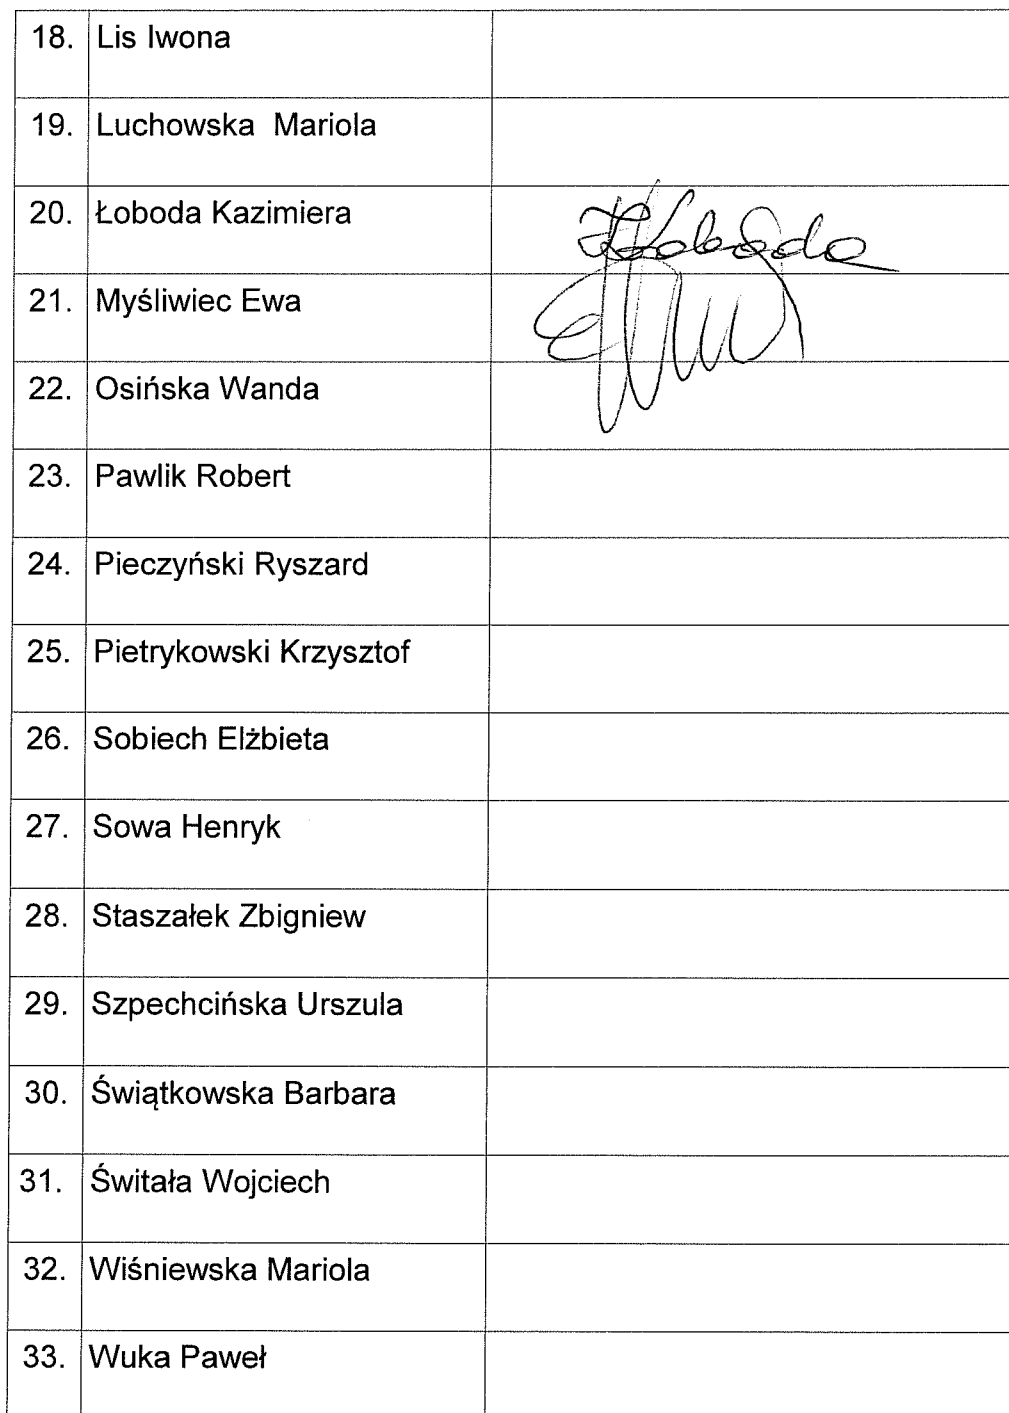 18. Lis Iwona
19. Luchowska Mariola
20. Łoboda Kazimiera Łoboda
21. Myśliwiec Ewa
22. Osińska Wanda
23. Pawlik Robert
24. Pieczyński Ryszard
25. Pietrykowski Krzysztof
26. Sobiech Elżbieta
27. Sowa Henryk
28. Staszałek Zbigniew
29. Szpechcińska Urszula
30. Świątkowska Barbara
31. Świtała Wojciech
32. Wiśniewska Mariola
33. Wuka Paweł